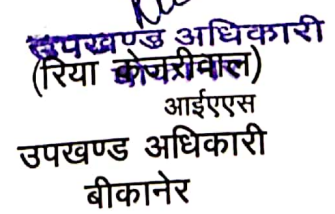 उपखण्ड अधिकारी
(रिया केजरीवाल)
आईएएस
उपखण्ड अधिकारी
बीकानेर